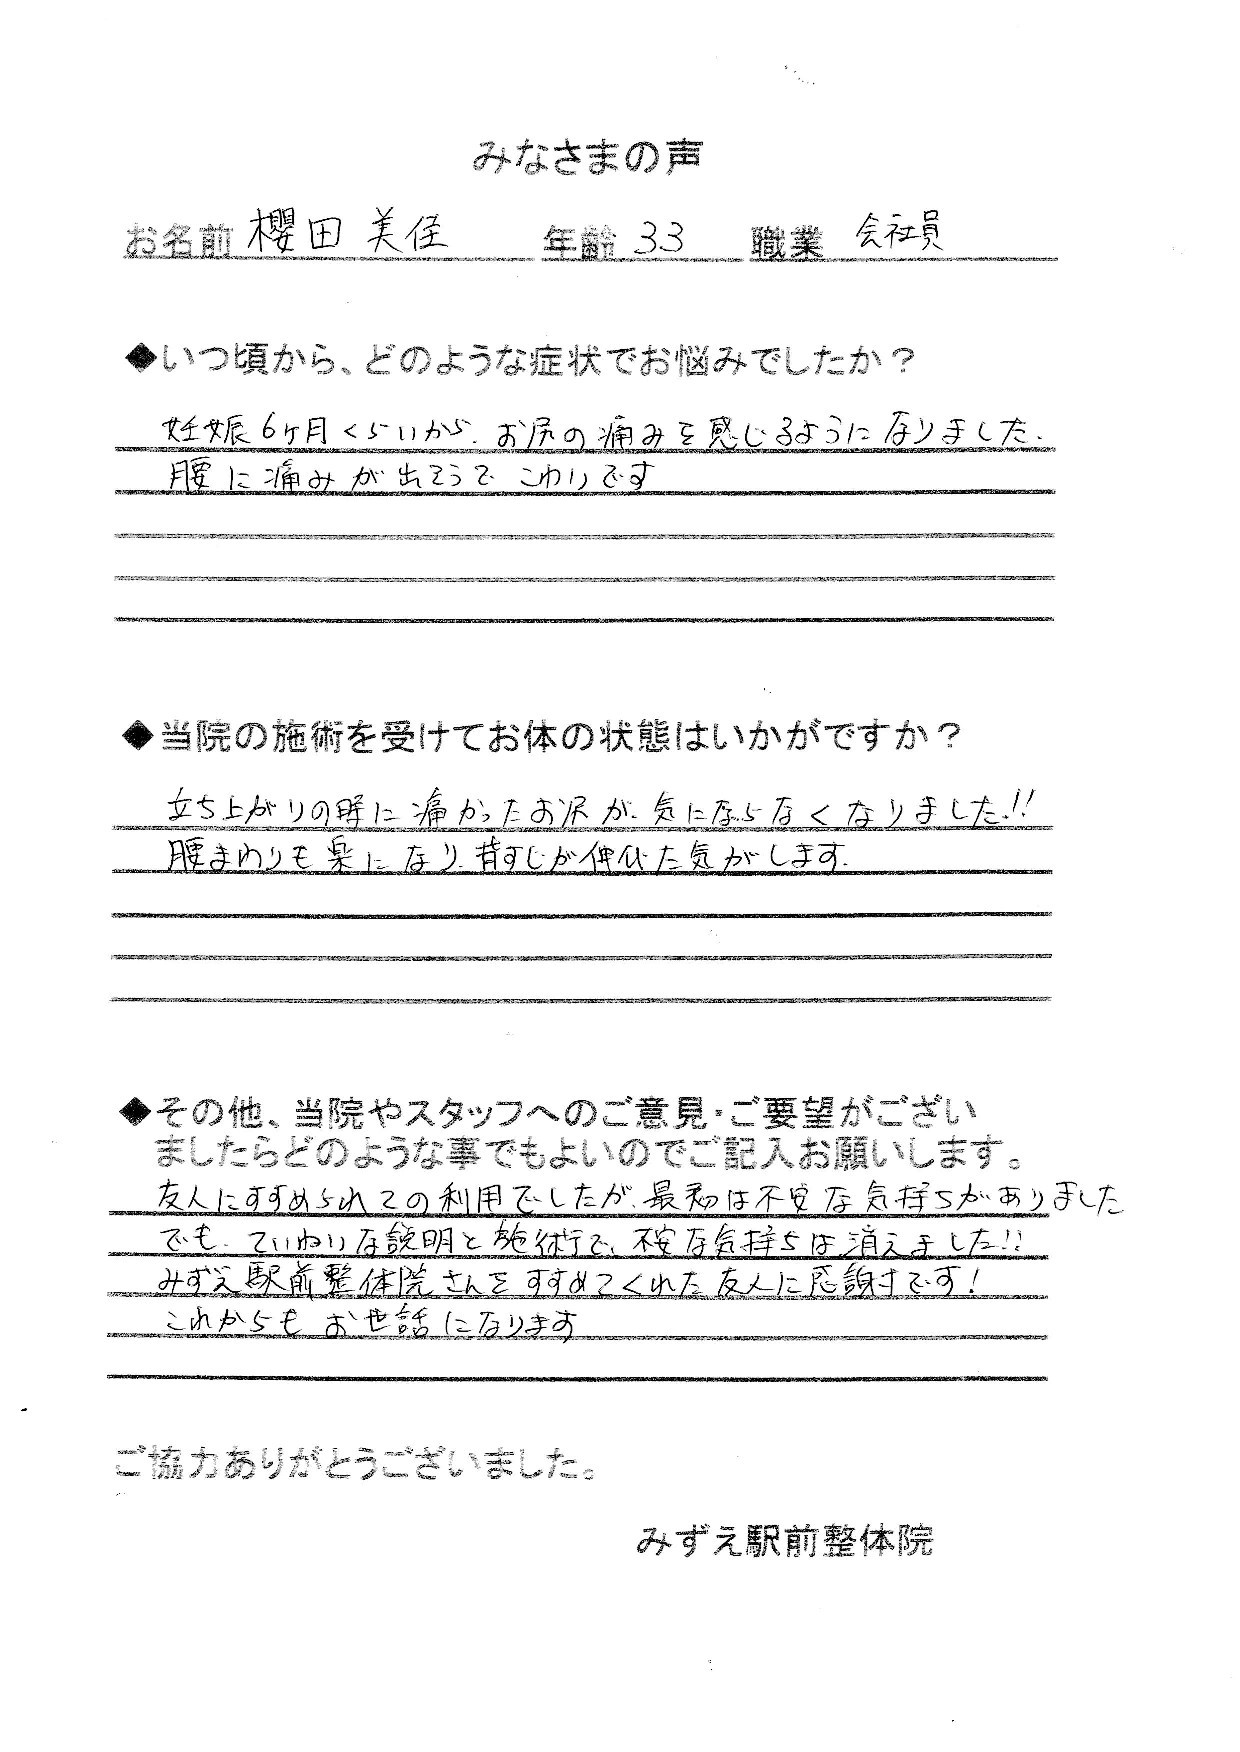 みなさまの声
お名前 櫻田 美佳 年齢 33 職業 会社員
◆いつ頃から、どのような症状でお悩みでしたか？
妊娠6ヶ月くらいから、お尻の痛みを感じるようになりました。
腰に痛みが出そうで こわいです
◆当院の施術を受けてお体の状態はいかがですか？
立ち上がりの時に痛かったお尻が、気にならなくなりました!!
腰まわりも楽になり、背すじが伸びた気がします。
◆その他、当院やスタッフへのご意見・ご要望がござい
ましたらどのような事でもよいのでご記入お願いします。
友人にすすめられての利用でしたが、最初は不安な気持ちがありました
でも、ていねいな説明と施術で、不安な気持ちは消えました!!
みずえ駅前整体院さんをすすめてくれた友人に感謝です!
これからも お世話になります
ご協力ありがとうございました。
みずえ駅前整体院